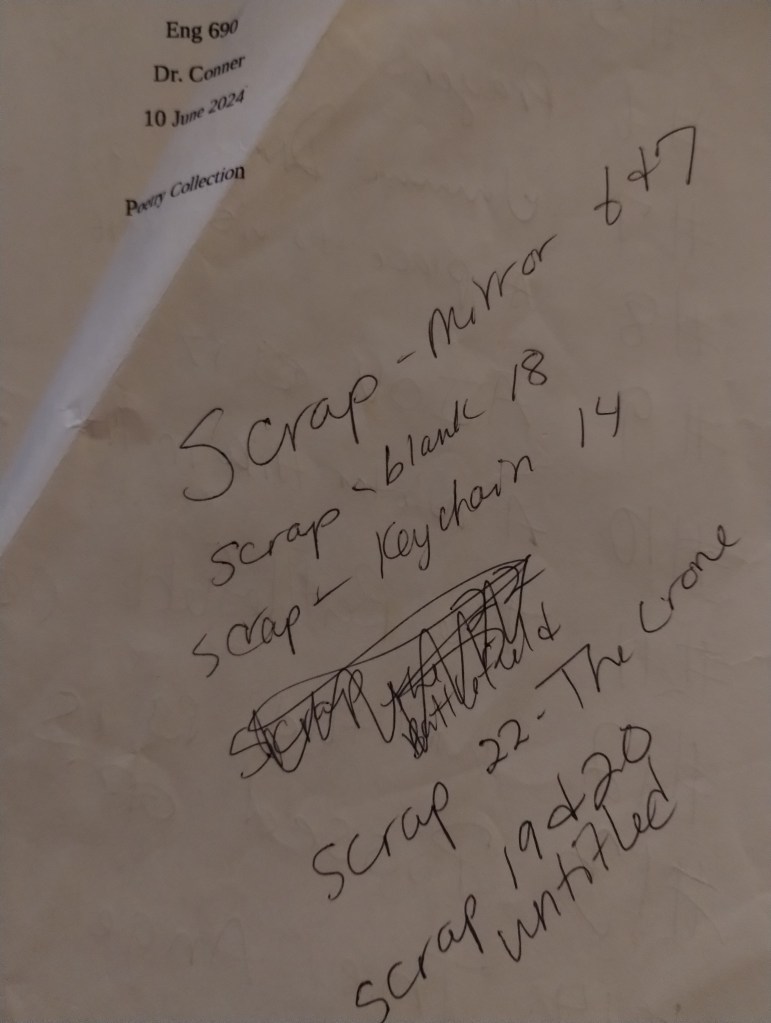 Eng 690
Dr. Conner
10 June 2024
Poetry Collection
Scrap - Mirror 6 & 7
Scrap - blank 18
Scrap - Keychain 14
Scrap
Battlefield
Scrap 22 - The Crone
Scrap 19 & 20
untitled